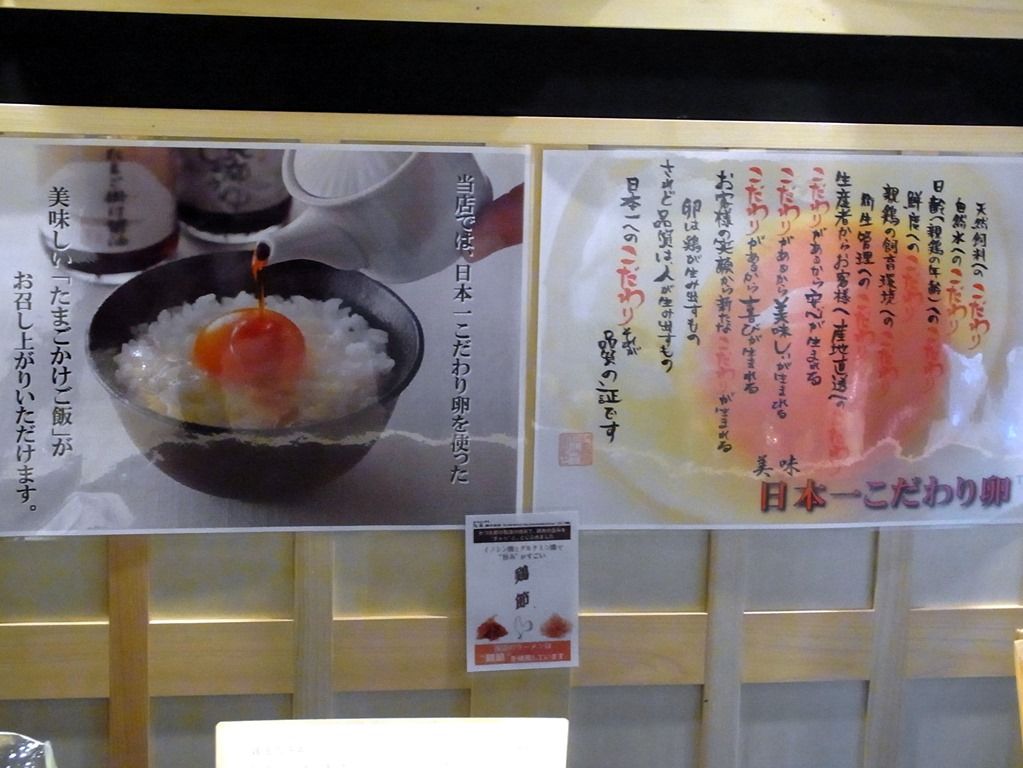 当店では、日本一こだわり卵を使った
美味しい「たまごかけご飯」が
お召し上がりいただけます。
天然飼料へのこだわり
自然水へのこだわり
日齢(親鶏の年齢)へのこだわり
鮮度へのこだわり
親鶏の飼育環境へのこだわり
衛生管理へのこだわり
生産者からお客様へ産地直送へのこだわり
こだわりがあるから安心が生まれる
こだわりがあるから美味しいが生まれる
こだわりがあるから喜びが生まれる
お客様の笑顔から新たなこだわりが生まれる
卵は鶏が生み出すもの
されど品質は人が生み出すもの
日本一へのこだわりそれが
品質の証です
美味
日本一こだわり卵
イノシン酸とグルタミン酸で
"旨み"がすごい
鶏節
"鶏節"を使用しています